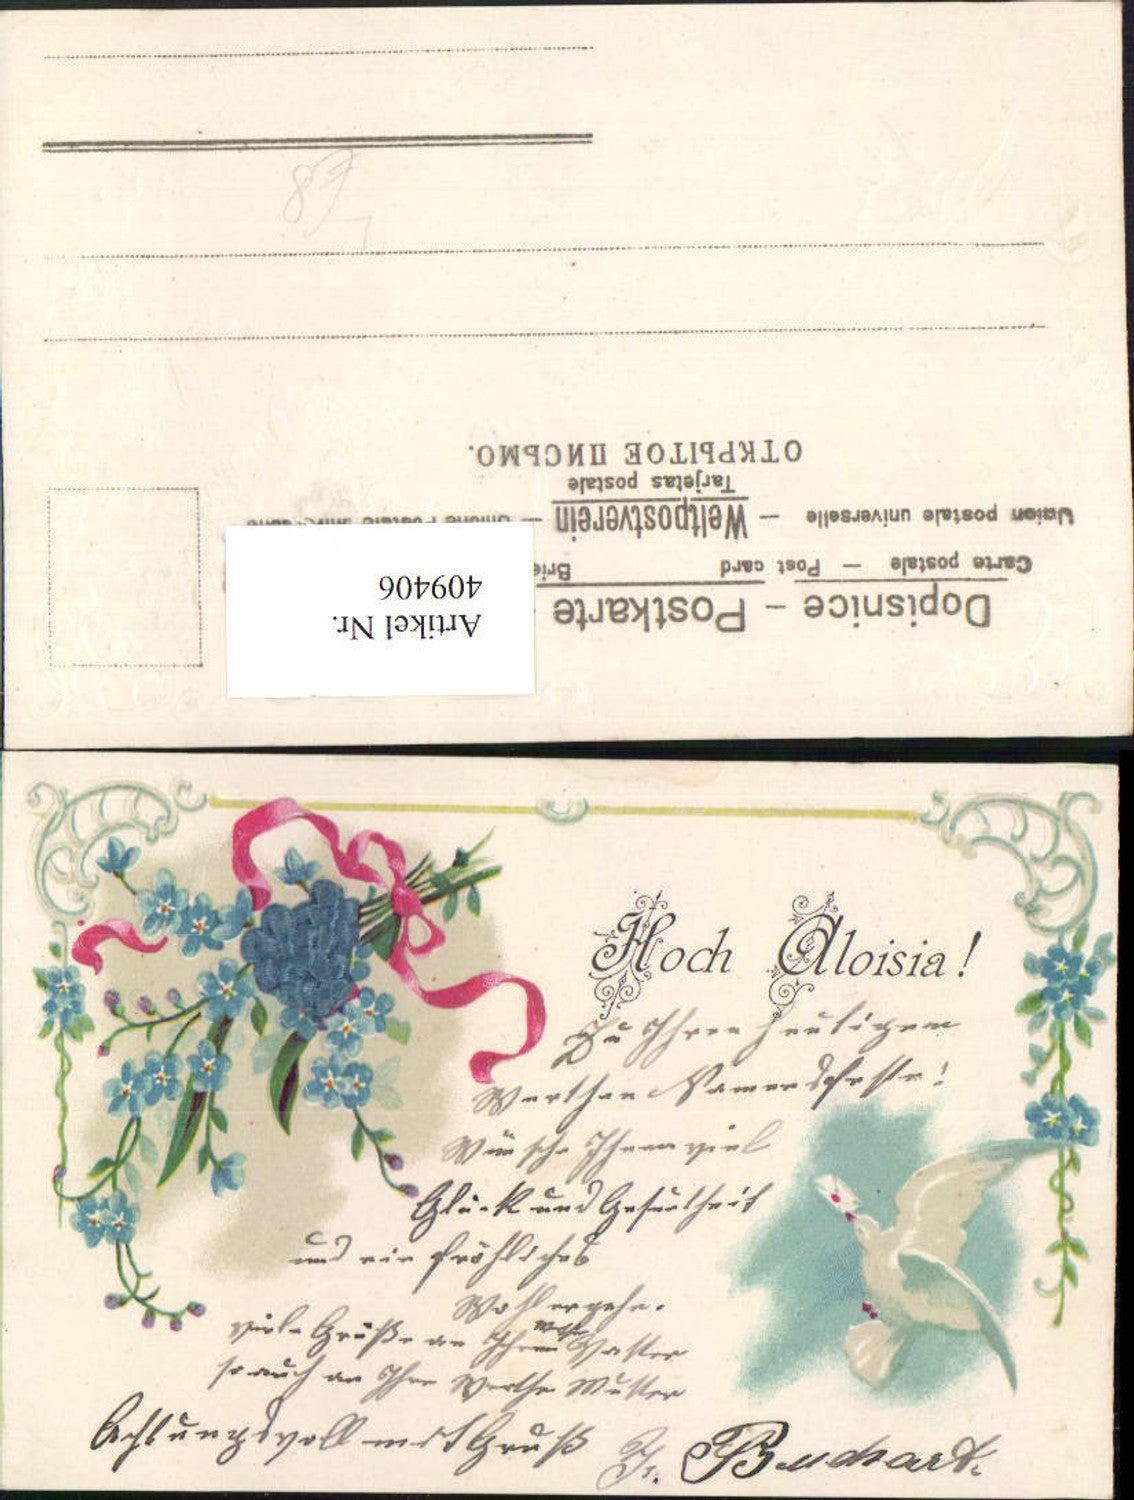 Dopisnice – Postkarte –
Carte postale — Post card Brie
Union postale universelle — Weltpostverein — Unione Postale universale
Tarjetas postale
ОТКРЫТОЕ ПИСЬМО.
Artikel Nr.
409406
89
Hoch Aloisia!
Zu Ihren heutigem
Werthen Namensfeste!
Wünsche Ihnen viel
Glück und Gesundheit
und ein fröhliches
Wohlergehn.
viele Grüße an Ihren Vatter
so auch an Ihre Werthe Mutter
Achtungsvoll mit Gruß Fr. Buchart.